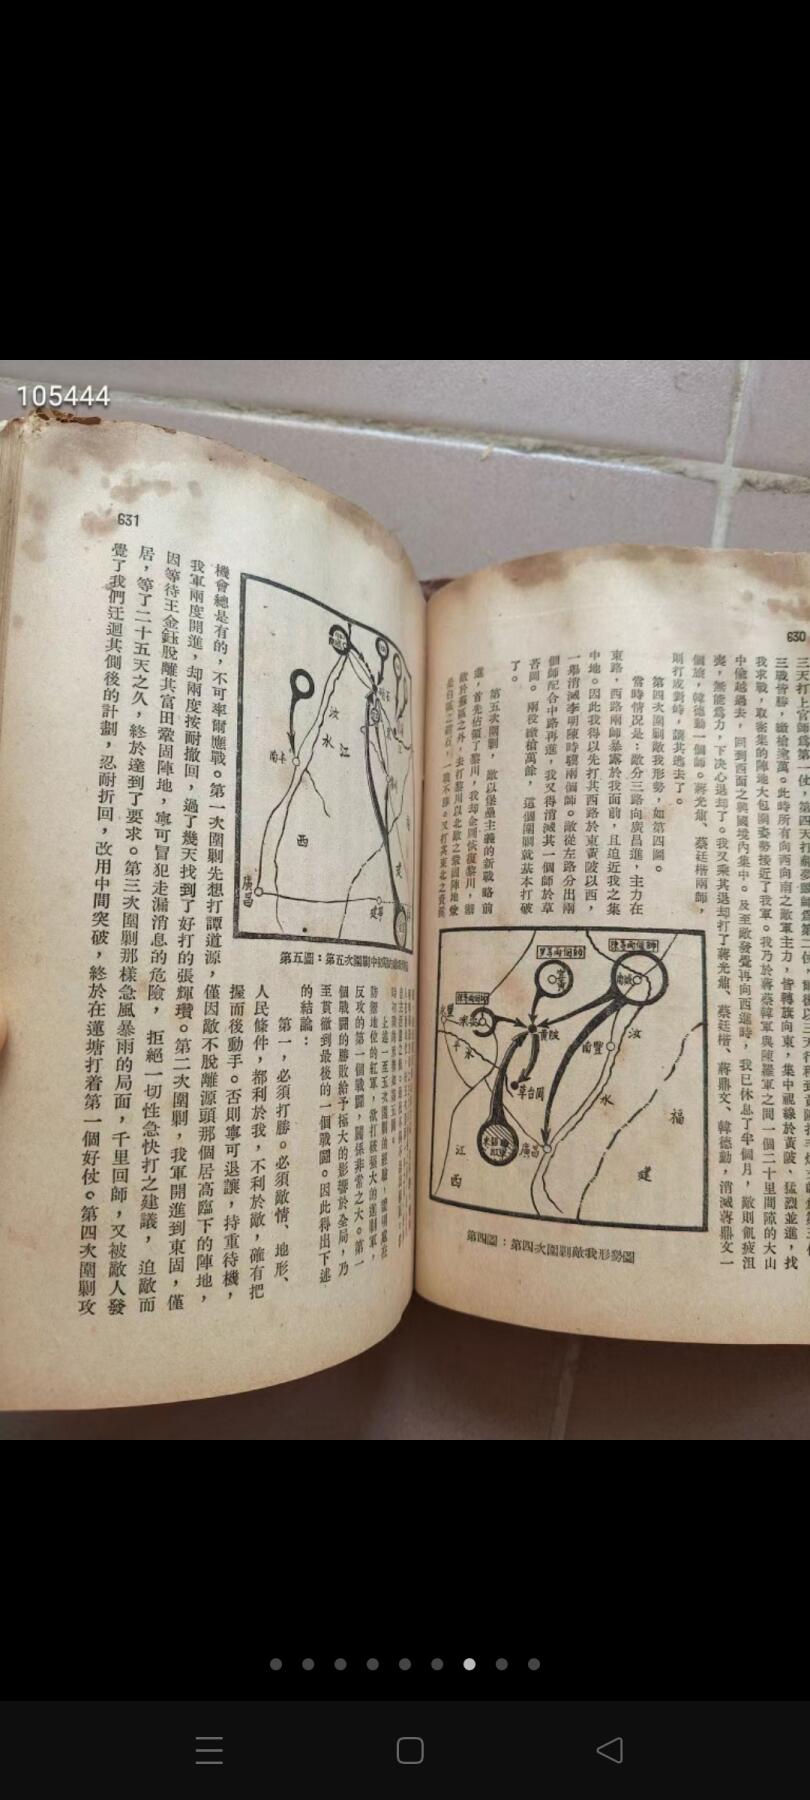 105444
630
三戰皆勝，繳槍逾萬。此時所有向西向南之敵軍主力，皆轉旗向東，集中視線於黃陂，猛烈並進，找
我求戰，取密集的陣地大包圍姿勢接近了我軍。我乃於蔣蔡韓軍與陳羅軍之間一個二十里間隙的大山
中偷越過去，回到西面之興國境內集中。及至敵發覺再向西進時，我已休息了半個月，敵則飢疲沮
喪，無能爲力，下决心退却了。我又乘其退却打了蔣光鼐、蔡廷楷、蔣鼎文、韓德勤，消滅蔣鼎文一
個旅，韓德勤一個師。蔣光鼐、蔡廷楷兩師，
則打成對峙，讓其逃去了。
第四次圍剿敵我形勢，如第四圖。
當時情况是：敵分三路向廣昌進，主力在
東路，西路兩師暴露於我面前，且迫近我之集
中地。因此我得以先打其西路於東黃陂以西，
一舉消滅李明陳時驥兩個師。敵從左路分出兩
個師配合中路再進，我又得消滅其一個師於草
苔岡。兩役繳槍萬餘，這個圍剿就基本打破
了。
第五次圍剿，敵以堡壘主義的新戰略前
進，首先佔領了黎川，我却企圖恢復黎川，禦
敵於蘇區之外，去打黎川以北敵之鞏固陣地兼
黃陂
草台岡
南豐
廣昌
汝
水
福
建
江
西
第四圖：第四次圍剿敵我形勢圖
631
汝
水
江
西
建
廣昌
建寧
上述一至五次圍剿的經驗，證明處在
防禦地位的紅軍，欲打破强大的進剿軍，
反攻的第一個戰鬬，關係非常之大。第一
個戰鬬的勝敗給予極大的影響於全局，乃
至貫徹到最後的一個戰鬬。因此得出下述
的結論：
第一，必須打勝。必須敵情、地形、
人民條件，都利於我，不利於敵，確有把
握而後動手。否則寧可退讓，持重待機，
機會總是有的，不可率爾應戰。第一次圍剿先想打譚道源，僅因敵不脫離源頭那個居高臨下的陣地，
我軍兩度開進，却兩度按耐撤回，過了幾天找到了好打的張輝瓚。第二次圍剿，我軍開進到東固，僅
因等待王金鈺脫離其富田鞏固陣地，寧可冒犯走漏消息的危險，拒絕一切性急快打之建議，迫敵而
居，等了二十五天之久，終於達到了要求。第三次圍剿那樣急風暴雨的局面，千里回師，又被敵人發
覺了我們迂迴其側後的計劃，忍耐折回，改用中間突破，終於在蓮塘打着第一個好仗。第四次圍剿攻